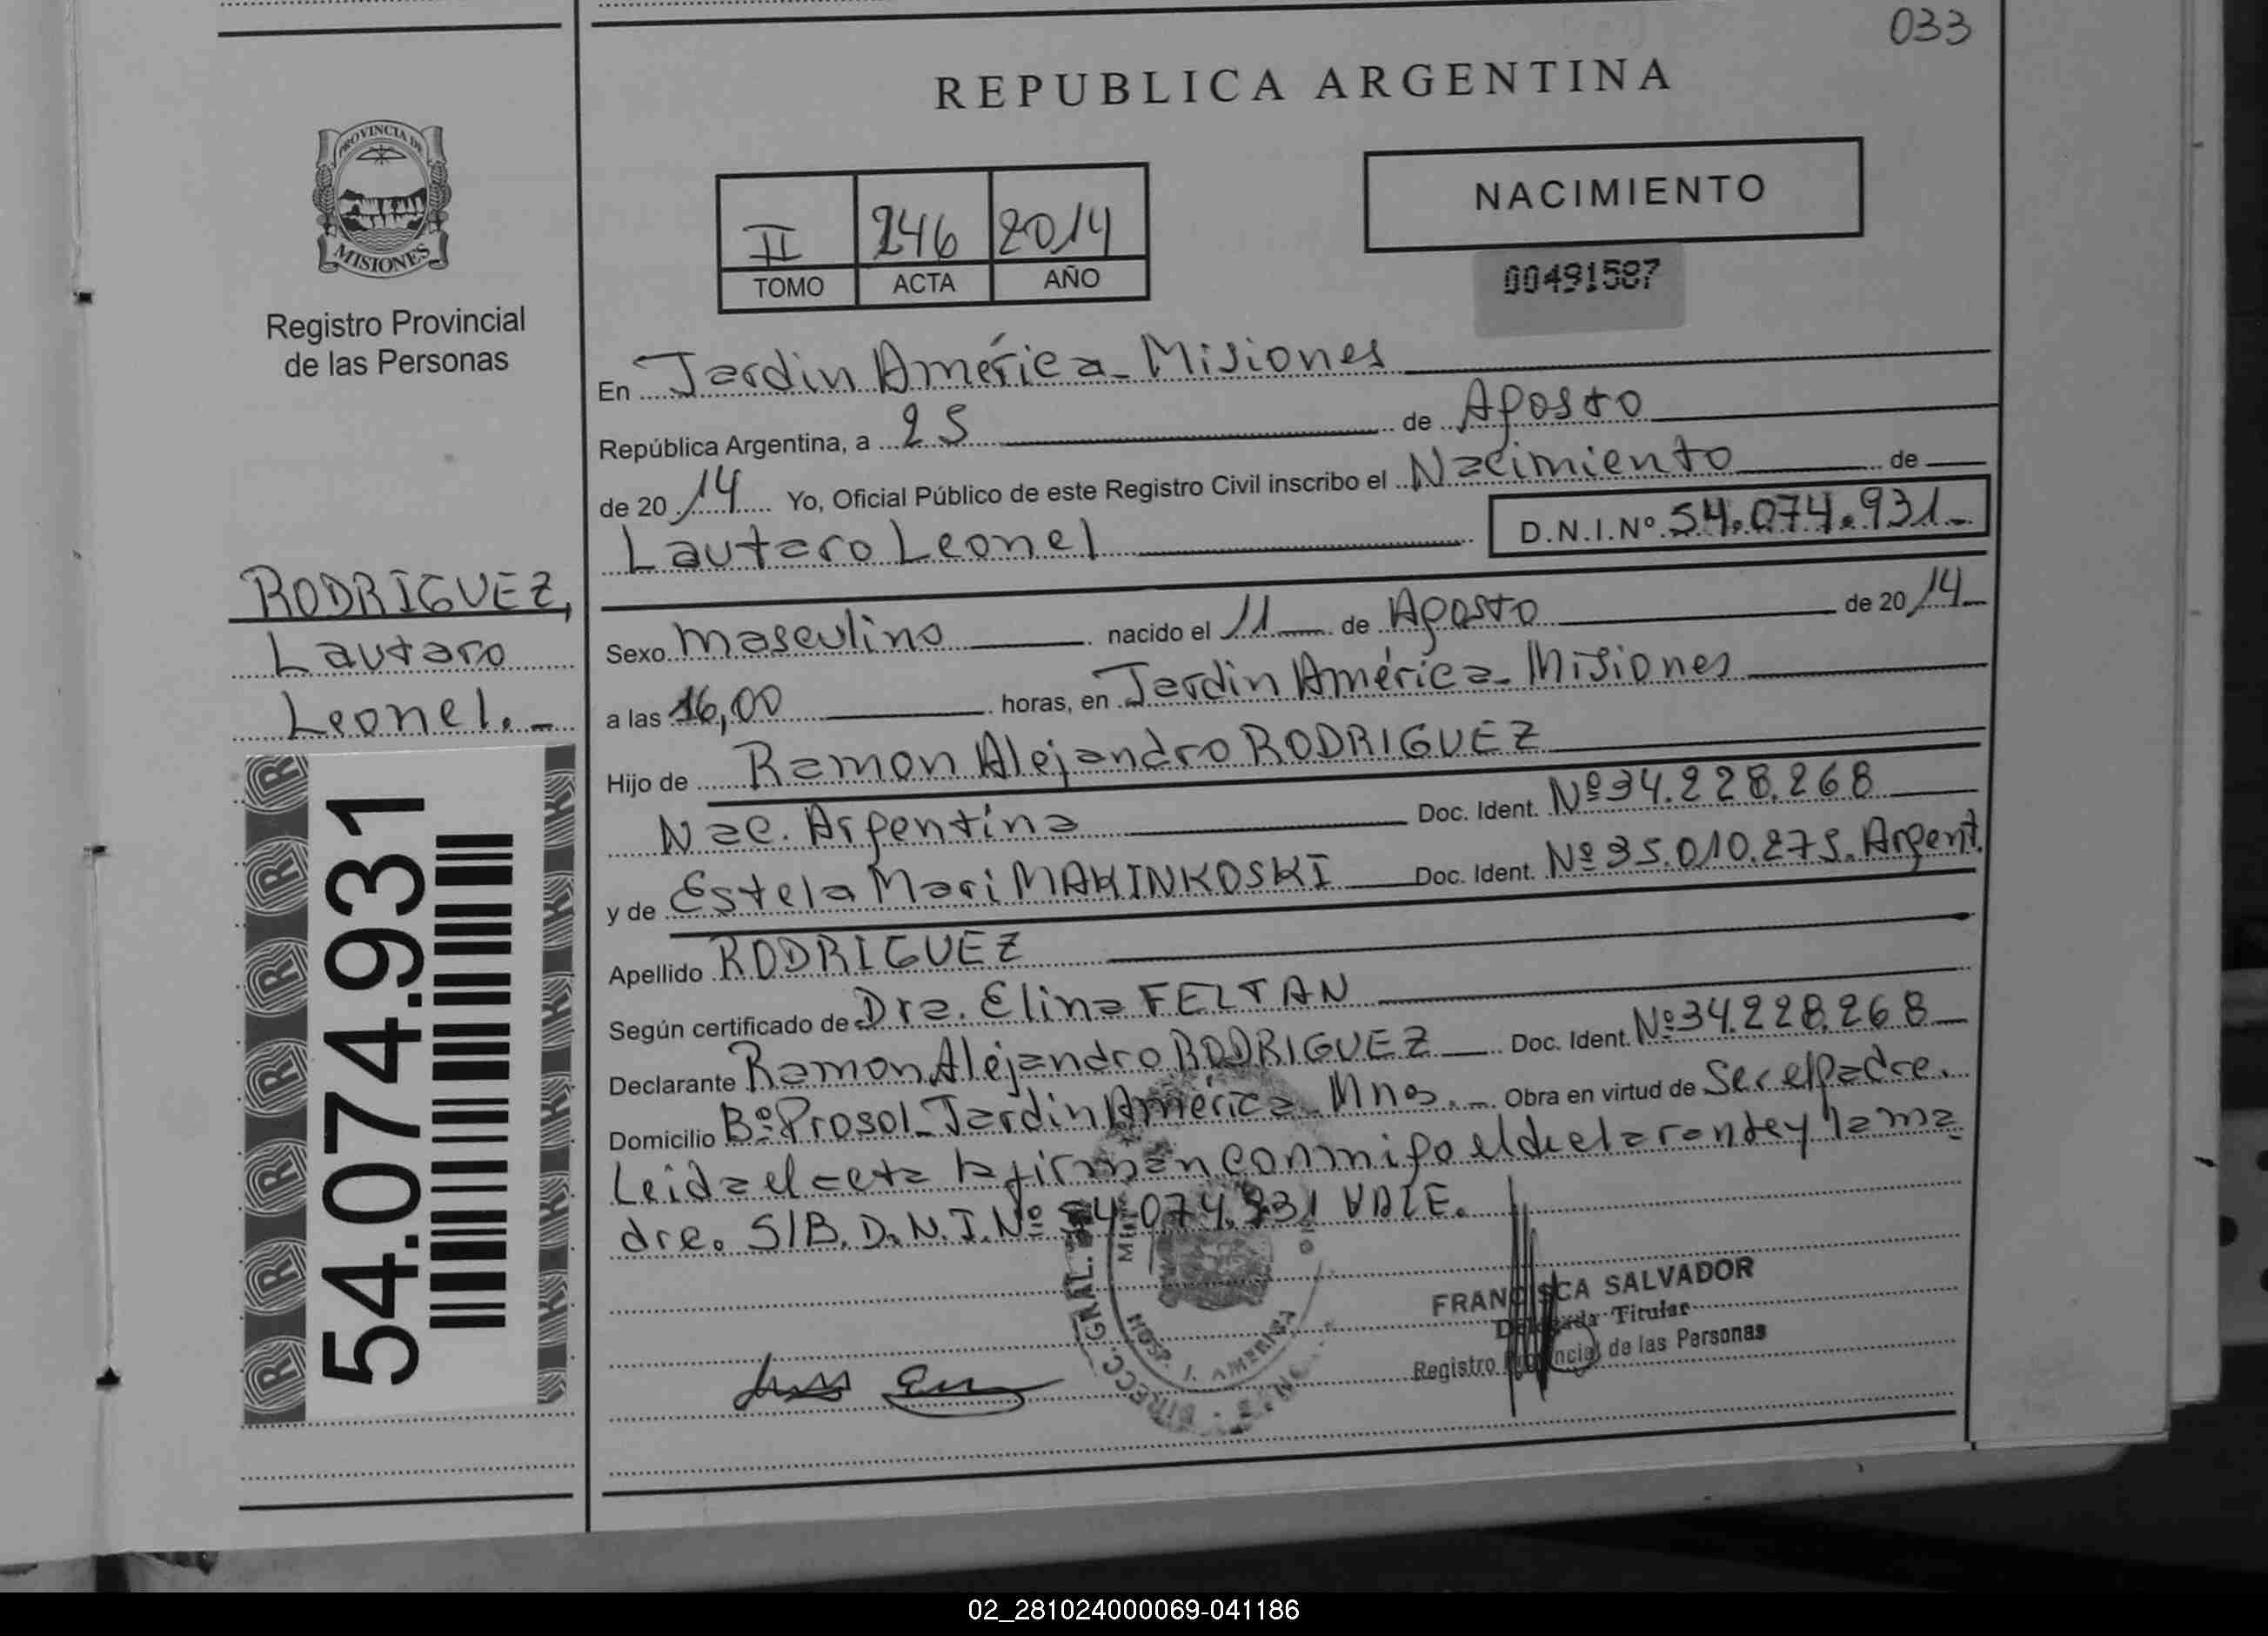 033
REPUBLICA ARGENTINA
PROVINCIA DE
MISIONES
Registro Provincial
de las Personas
II 246 2014
TOMO ACTA AÑO
NACIMIENTO
00491587
En Jardin América - Misiones
República Argentina, a 25 de Agosto
de 2014 Yo, Oficial Público de este Registro Civil inscribo el Nacimiento de
Lautaro Leonel D.N.I.Nº 54.074.931-
RODRIGUEZ,
Lautaro
Leonel.-
54.074.931
Sexo masculino nacido el 11 de Agosto de 2014
a las 16,00 horas, en Jardin América - Misiones
Hijo de Ramon Alejandro RODRIGUEZ
Nac. Argentina Doc. Ident. Nº 34.228.268
y de Estela Mari MAKINKOSKI Doc. Ident. Nº 35.010.275. Argent.
Apellido RODRIGUEZ
Según certificado de Dra. Elina FELTAN
Declarante Ramon Alejandro RODRIGUEZ Doc. Ident. Nº 34.228.268
Domicilio Bº Prosol - Jardin América - Mnes. - Obra en virtud de Ser el Padre.
Leida el acta la firman conmigo el declarante y la ma
dre. S/B. D.N.I. Nº 54.074.931 VALE.
FRANCISCA SALVADOR
Delegada Titular
Registro Provincial de las Personas
DIRECC. GRAL.
HOSP. J. AMERICA
02_281024000069-041186